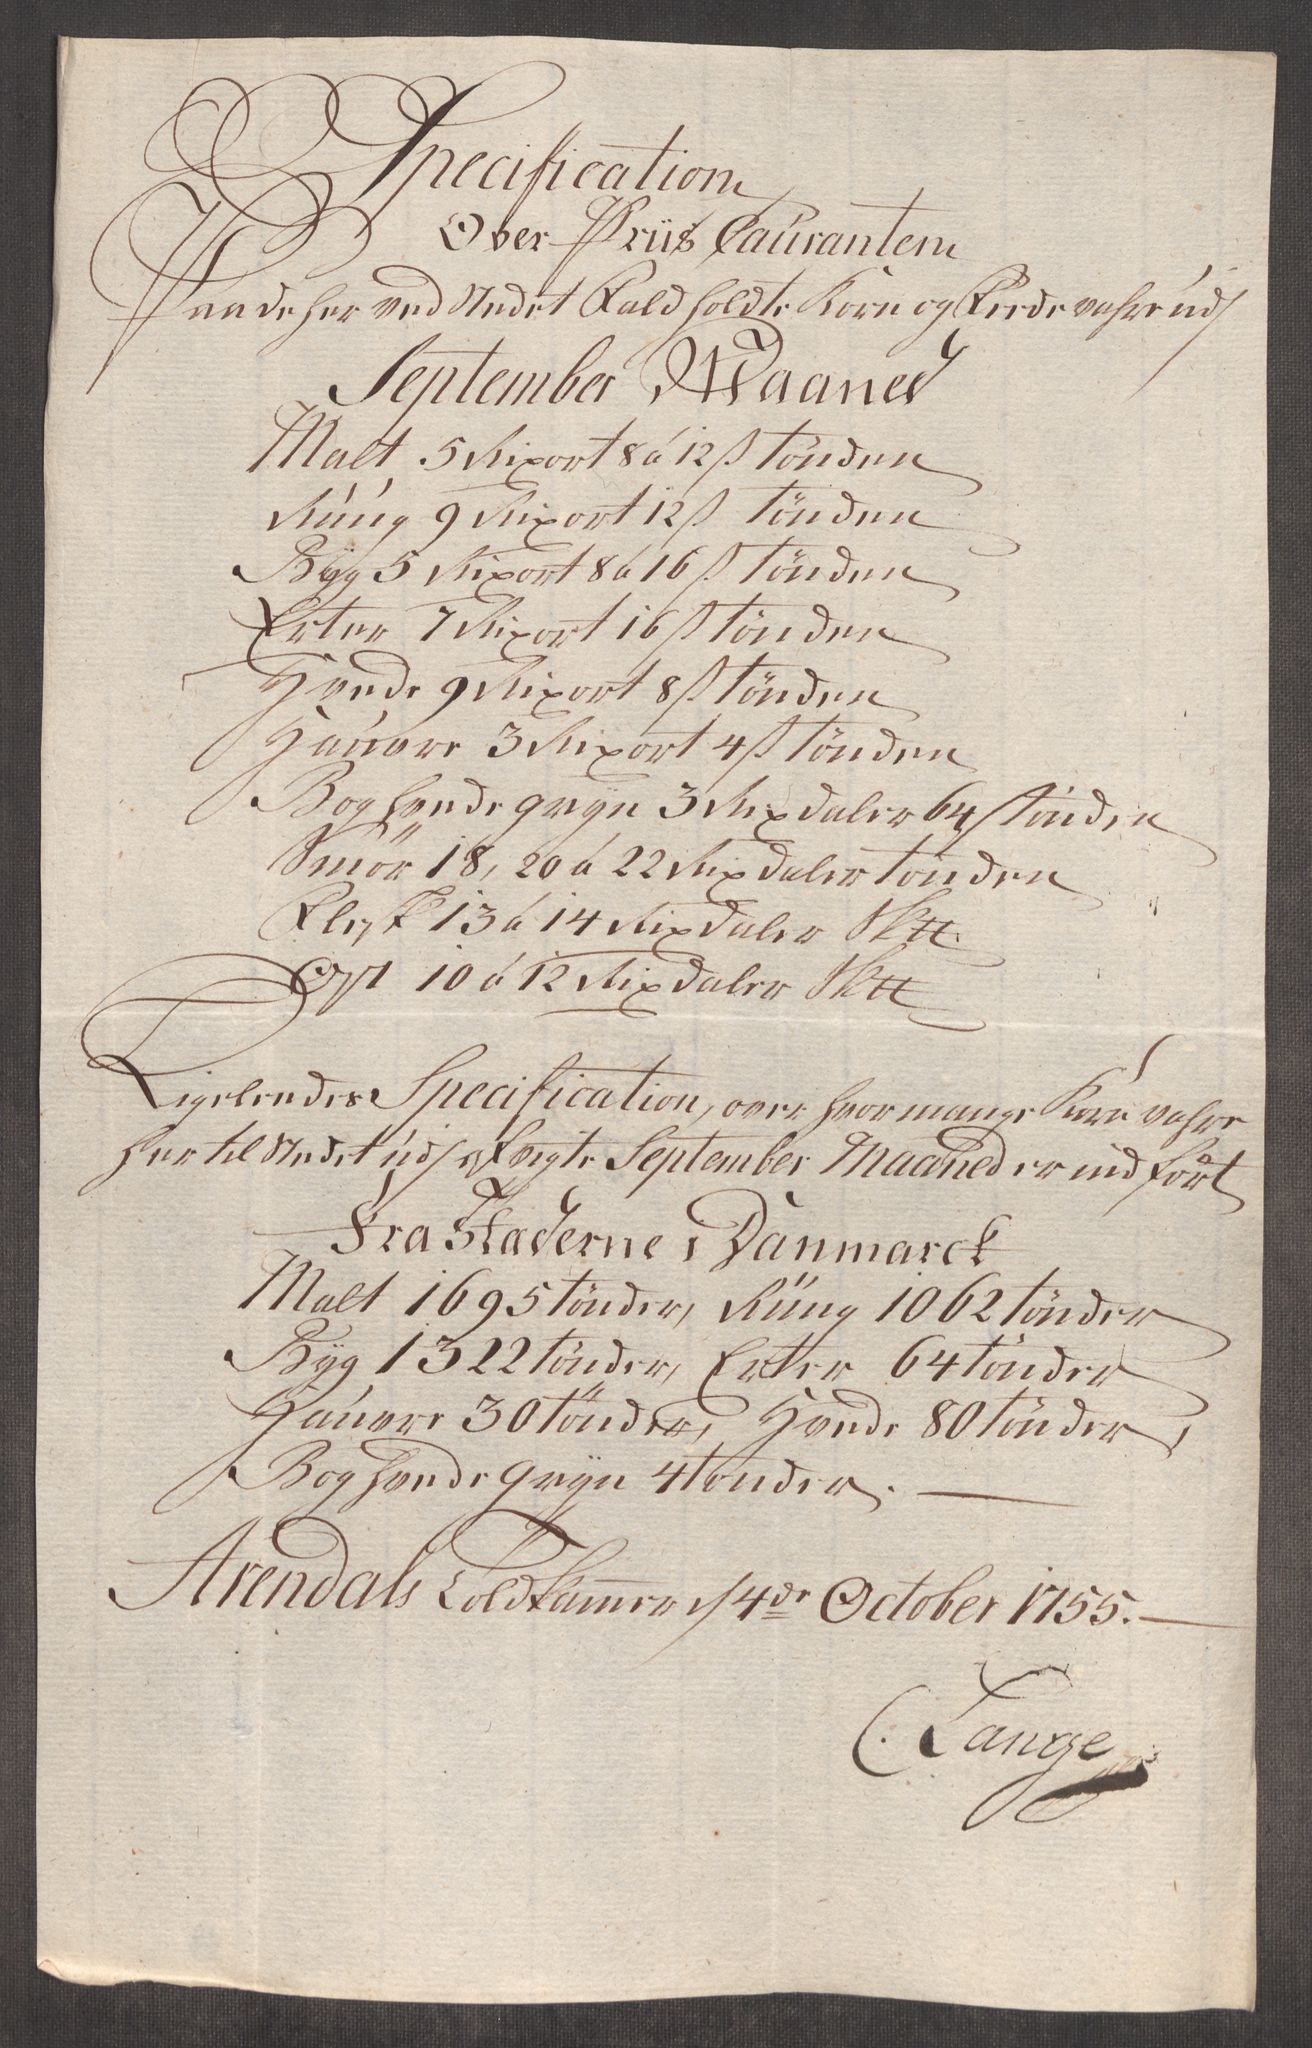 Specification
Over Priis Caúranten
Paa de her ved Stedet Fald holdte Korn og Feede vahre úd j
September Maaned
Malt 5 Rixort 8 á 12 ß tönden
Rúúg 9 Rixort 12 ß tönden
Byg 5 Rixort 8 á 16 ß tönden
Erter 7 Rixort 16 ß tönden
Hvede 9 Rixort 8 ß tönden
Haúvre 3 Rixort 4 ß tönden
Boghvede gryn 3 Rixdaler 64 ß tönden
Smör 18, 20 á 22 Rixdaler tönden
Flesk 13 á 14 Rixdaler Sk℔
Ost 10 á 12 Rixdaler Sk℔
Ligeleedes Specification, over hvor mange Korn vahre
her til Stedet úd j September Maaned er ind fört
Fra Stæderne i Danmarck
Malt 1695 tönder, Rúúg 1062 tönder
Byg 1322 tönder, Erter 64 tönder
Haúvre 30 tönder, Hvede 80 tönder,
Boghvede gryn 4 tönder.
Arendals Toldkammer 4de October 1755.
C. Lange